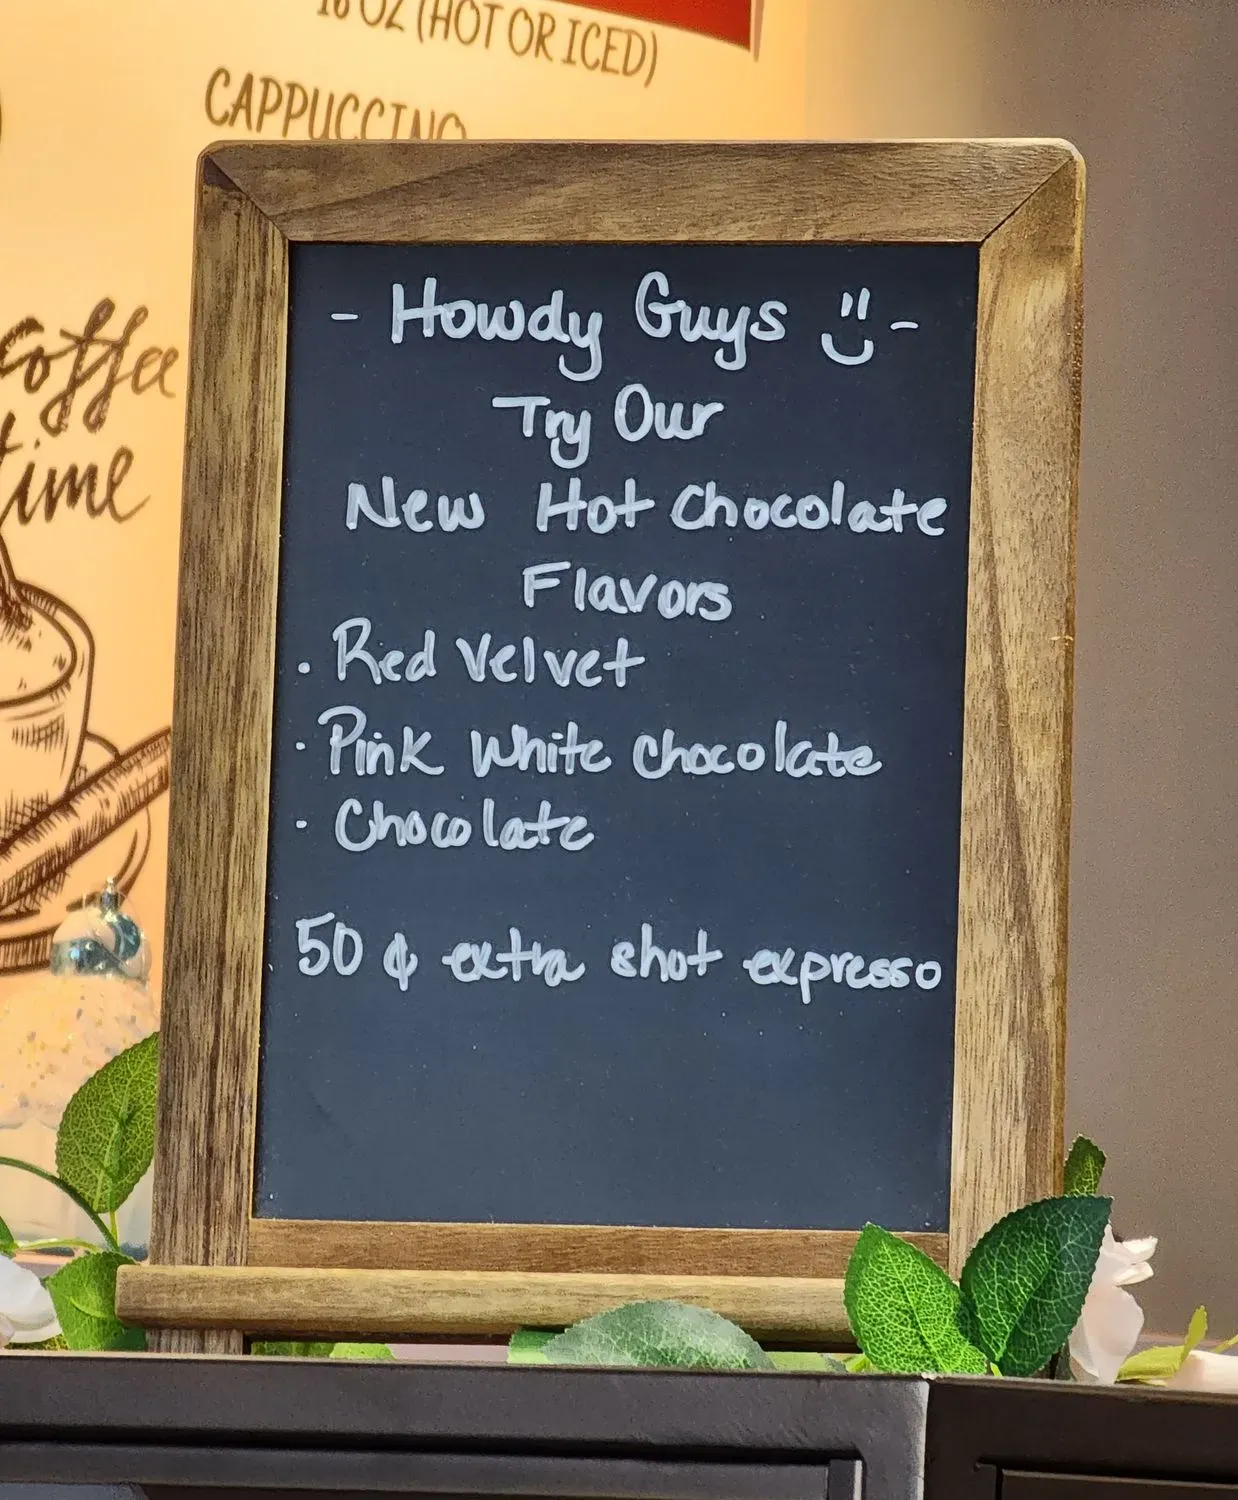 16 OZ (HOT OR ICED)
CAPPUCCINO
coffee
time
- Howdy Guys -
Try Our
New Hot Chocolate
Flavors
· Red Velvet
· Pink White Chocolate
· Chocolate
50 ¢ extra shot expresso